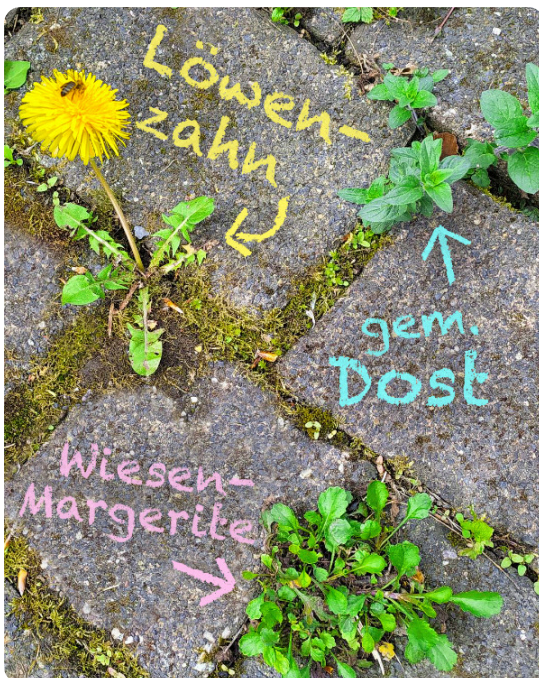 Löwen-
zahn
gem.
Dost
Wiesen-
Margerite